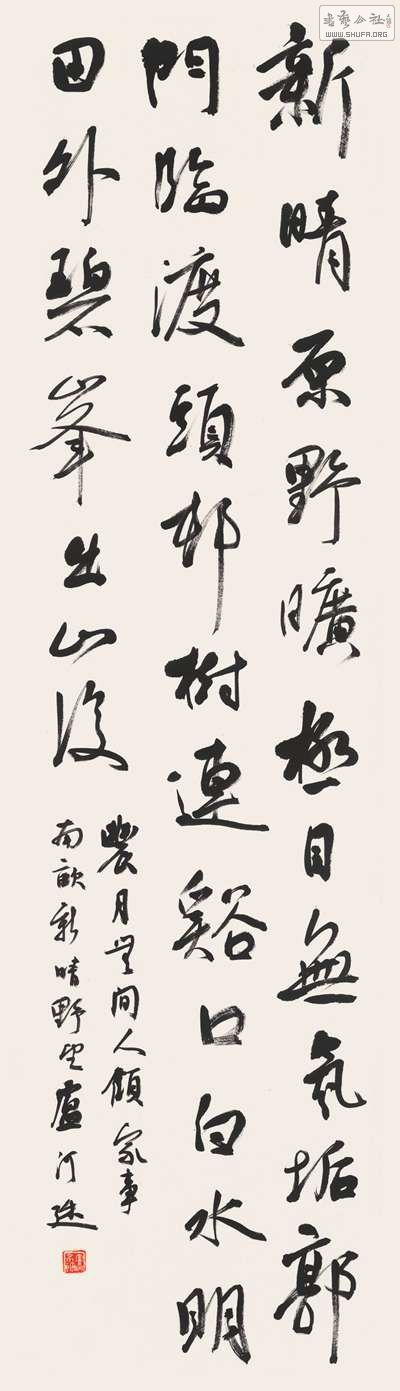 新晴原野曠極目無氛垢郭
門臨渡頭邨樹連谿口白水明
田外碧峯出山後
農月無間人傾家事
南畝新晴野望盧汀
书艺公社
WWW.SHUFA.ORG